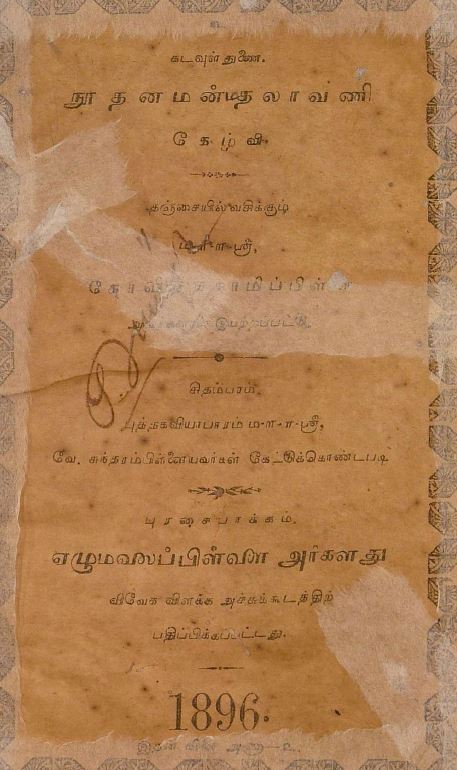 கடவுள் துணை.
நூதனமன்மதலாவ்ணி
கேழ்வி
தஞ்சையில்வசிக்கும்
ம-௱-௱-ஸ்ரீ,
இயற்றப்பட்டு.
சிதம்பரம்,
புத்தகவியாபாரம் ம-௱-௱-ஸ்ரீ,
வே. சுந்தரம்பிள்ளையவர்கள் கேட்டுக்கொண்டபடி
புரசைபாக்கம்,
எழுமலைப்பிள்ளை அர்களது
விவேக விளக்க அச்சுக்கூடத்திற்
பதிப்பிக்கப்பட்டது.
1896.
இதன் விலை அணா-உ